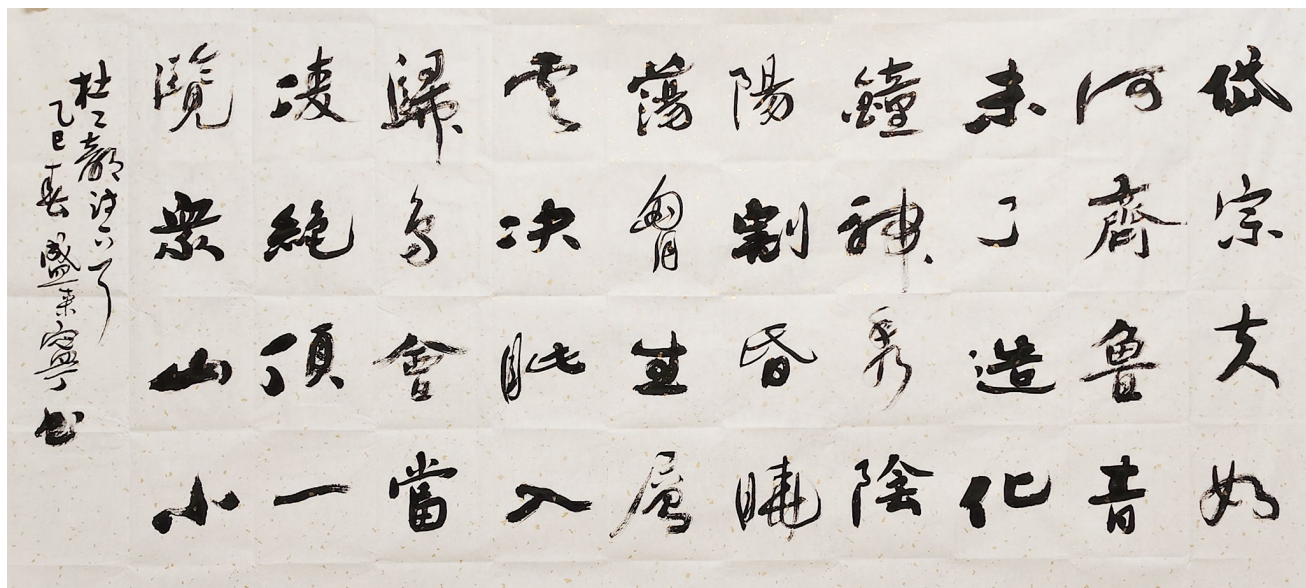 岱宗夫如
何齊魯青
未了造化
鐘神秀陰
陽割昏曉
蕩胷生層
云决眦入
歸鳥會當
凌絶頂一
覽衆山小
杜工部诗一首
乙巳春盛来寧书